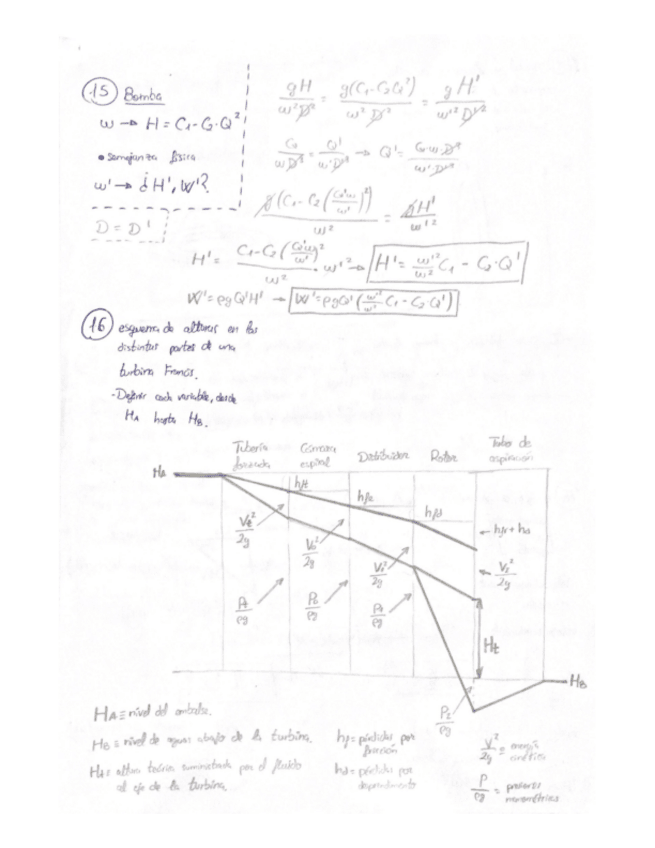 15 Bomba
ω → H = C₁ - C₂·Q²
• semejanza física
ω' → ¿H', W'?
D = D'
gH/ω²D² = g(C₁-C₂Q²)/ω²D² = gH'/ω'²D'²
Q/ωD³ = Q'/ω'D'³ → Q' =
g(C₁ - C₂(Q'ω/ω')²)/ω² = gH'/ω'²
H' = C₁-C₂(Q'ω/ω')²/ω² · ω'² → H' = ω'²/ω² C₁ - C₂·Q'
W' = ρgQ'H' → W' = ρgQ'(ω'²/ω² C₁ - C₂·Q')
16 esquema de alturas en las
distintas partes de una
turbina Francis.
- Definir cada variable, desde
HA hasta HB.
Tubería forzada
Cámara espiral
Distribuidor
Rotor
Tubo de aspiración
HA
hft
hfe
hfd
← hfr + ha
V²/2g
V²/2g
V²/2g
V²/2g
P/ρg
P/ρg
P/ρg
Ht
HB
P₂/ρg
HA ≡ nivel del embalse.
HB ≡ nivel de aguas abajo de la turbina.
Ht ≡ altura teórica suministrada por el fluido
al eje de la turbina.
hf = pérdidas por
fricción
hd = pérdidas por
desprendimiento
V²/2g = energía cinética
P/ρg = presiones manométricas